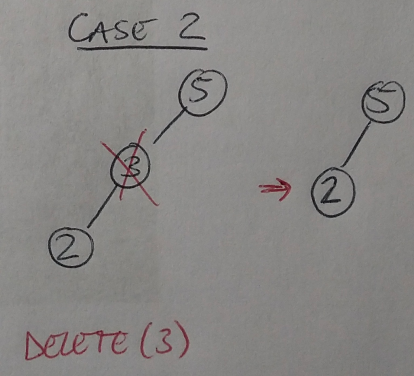 CASE 2
5
5
3
2
2
DELETE (3)